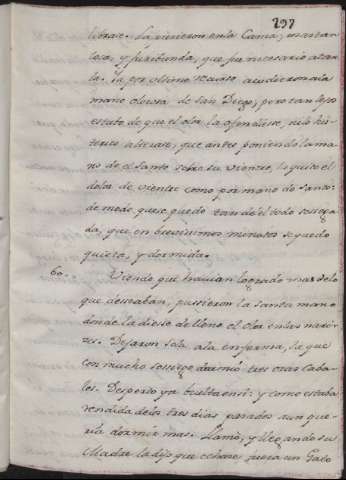 297
librar. La vinieron en la Cama, mas tan
losa, y furibunda, que fue necesario atar
la. Y por ultimo recurso acudieron a la
mano olorosa de San Diego; pero tan lejos
estubo de que el olor la ofendiese, ni lo his-
terico alterase, que antes poniendo la ma-
no de el Santo sobre su vientre, le quito el
dolor de vientre como por mano de santo:
de modo que se quedo tan de el todo sosega-
da, que en brevisimos minutos se quedo
quieta, y dormida.
60. Viendo que havian logrado mas de lo
que deseaban, pusieron la santa mano
donde la diese de lleno el olor en las nari-
zes. Dejaron sola a la enferma, la que
con mucho sosiego durmio tres oras caba-
les. Desperto ya buelta en si: y como estaba
rendida de los tres dias pasados aun que-
ria dormir mas. Llamó, y llegando su
Madre la dijo que echase fuera un Gato